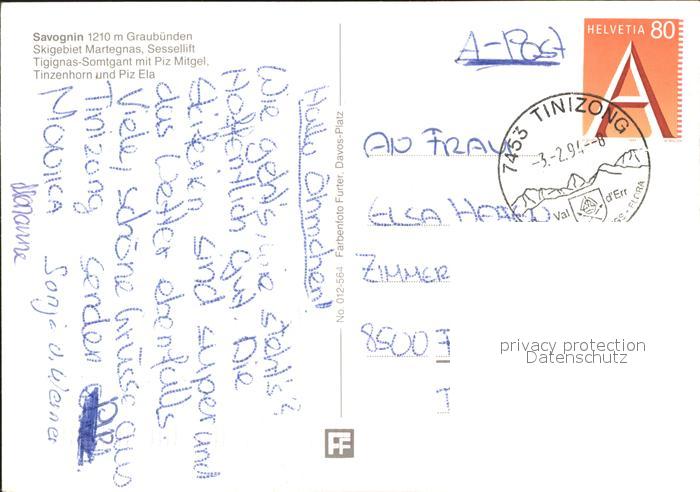 Savognin 1210 m Graubünden
Skigebiet Martegnas, Sessellift
Tigignas-Somtgant mit Piz Mitgel,
Tinzenhorn und Piz Ela
Hallo Öhmchen!
Wie geht's, wie steht's?
Hoffentlich gut. Die
Pisten sind super und
das Wetter ebenfalls.
Viele, schöne Grüsse aus
Tinizong senden Dir
Monica Sonja u. Werner
Marianne
No. 012-564 Farbenfoto Furter, Davos-Platz
FF
A-Post
HELVETIA 80
A
7453 TINIZONG
-3.-2.94--8
Val d'Err
FLORA
AN FRAU
ELSA
ZIMMER
8500 F
T
privacy protection
Datenschutz